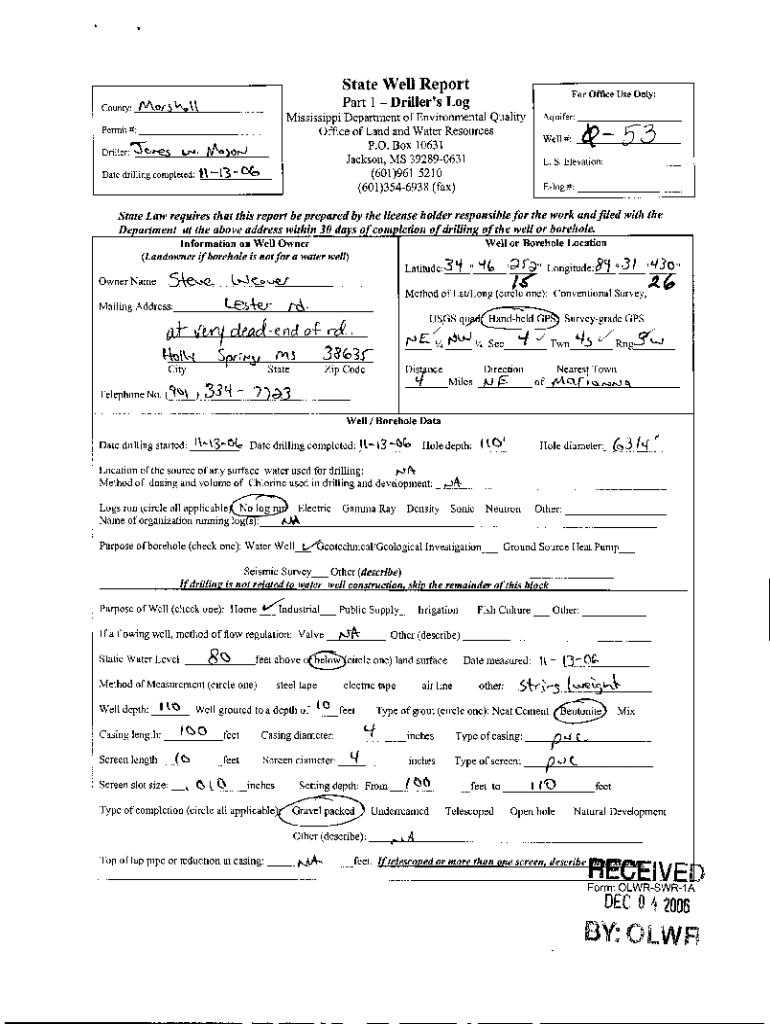 State Well Report
Part 1 – Driller's Log
Mississippi Department of Environmental Quality
Office of Land and Water Resources
P.O. Box 10631
Jackson, MS 39289-0631
(601)961 5210
(601)354-6938 (fax)
County: Marshall
Permit #:
Driller: James W. Mason
Date drilling completed: 11-13-06
For Office Use Only:
Aquifer:
Well #: Q-53
L. S. Elevation:
E-log #:
State Law requires that this report be prepared by the license holder responsible for the work and filed with the
Department at the above address within 30 days of completion of drilling of the well or borehole.
Information on Well Owner
(Landowner if borehole is not for a water well)
Owner Name Steve Weaver
Mailing Address: Lester rd.
at very dead-end of rd.
Holly Springs ms 38635
City State Zip Code
Telephone No. (901) 334-7723
Well or Borehole Location
Latitude: 34 ° 46 ' 252 " Longitude: 89 ° 31 ' 430 "
15 26
Method of Lat/Long (circle one): Conventional Survey,
USGS quad, Hand-held GPS, Survey-grade GPS
NE ¼ NW ¼ Sec 4 Twn 4s Rng 3w
Distance Direction Nearest Town
4 Miles NE of Marianna
Well / Borehole Data
Date drilling started: 11-13-06 Date drilling completed: 11-13-06 Hole depth: 110' Hole diameter: 6 3/4"
Location of the source of any surface water used for drilling: NA
Method of dosing and volume of Chlorine used in drilling and development: NA
Logs run (circle all applicable): No log run Electric Gamma Ray Density Sonic Neutron Other:
Name of organization running log(s): NA
Purpose of borehole (check one): Water Well ✓ Geotechnical/Geological Investigation Ground Source Heat Pump
Seismic Survey Other (describe)
If drilling is not related to water well construction, skip the remainder of this block
Purpose of Well (check one): Home ✓ Industrial Public Supply Irrigation Fish Culture Other:
If a flowing well, method of flow regulation: Valve NA Other (describe)
Static Water Level 80 feet above or below (circle one) land surface Date measured: 11-13-06
Method of Measurement (circle one) steel tape electric tape air line other: string/weight
Well depth: 110 Well grouted to a depth of 10 feet Type of grout (circle one): Neat Cement Bentonite Mix
Casing length: 100 feet Casing diameter: 4 inches Type of casing: pvc
Screen length 10 feet Screen diameter 4 inches Type of screen: pvc
Screen slot size: .010 inches Setting depth: From 100 feet to 110 feet
Type of completion (circle all applicable): Gravel packed Underreamed Telescoped Open hole Natural Development
Other (describe): NA
Top of lap pipe or reduction in casing: NA feet. If telescoped or more than one screen, describe
RECEIVED
Form: OLWR-SWR-1A
DEC 04 2006
BY: OLWR